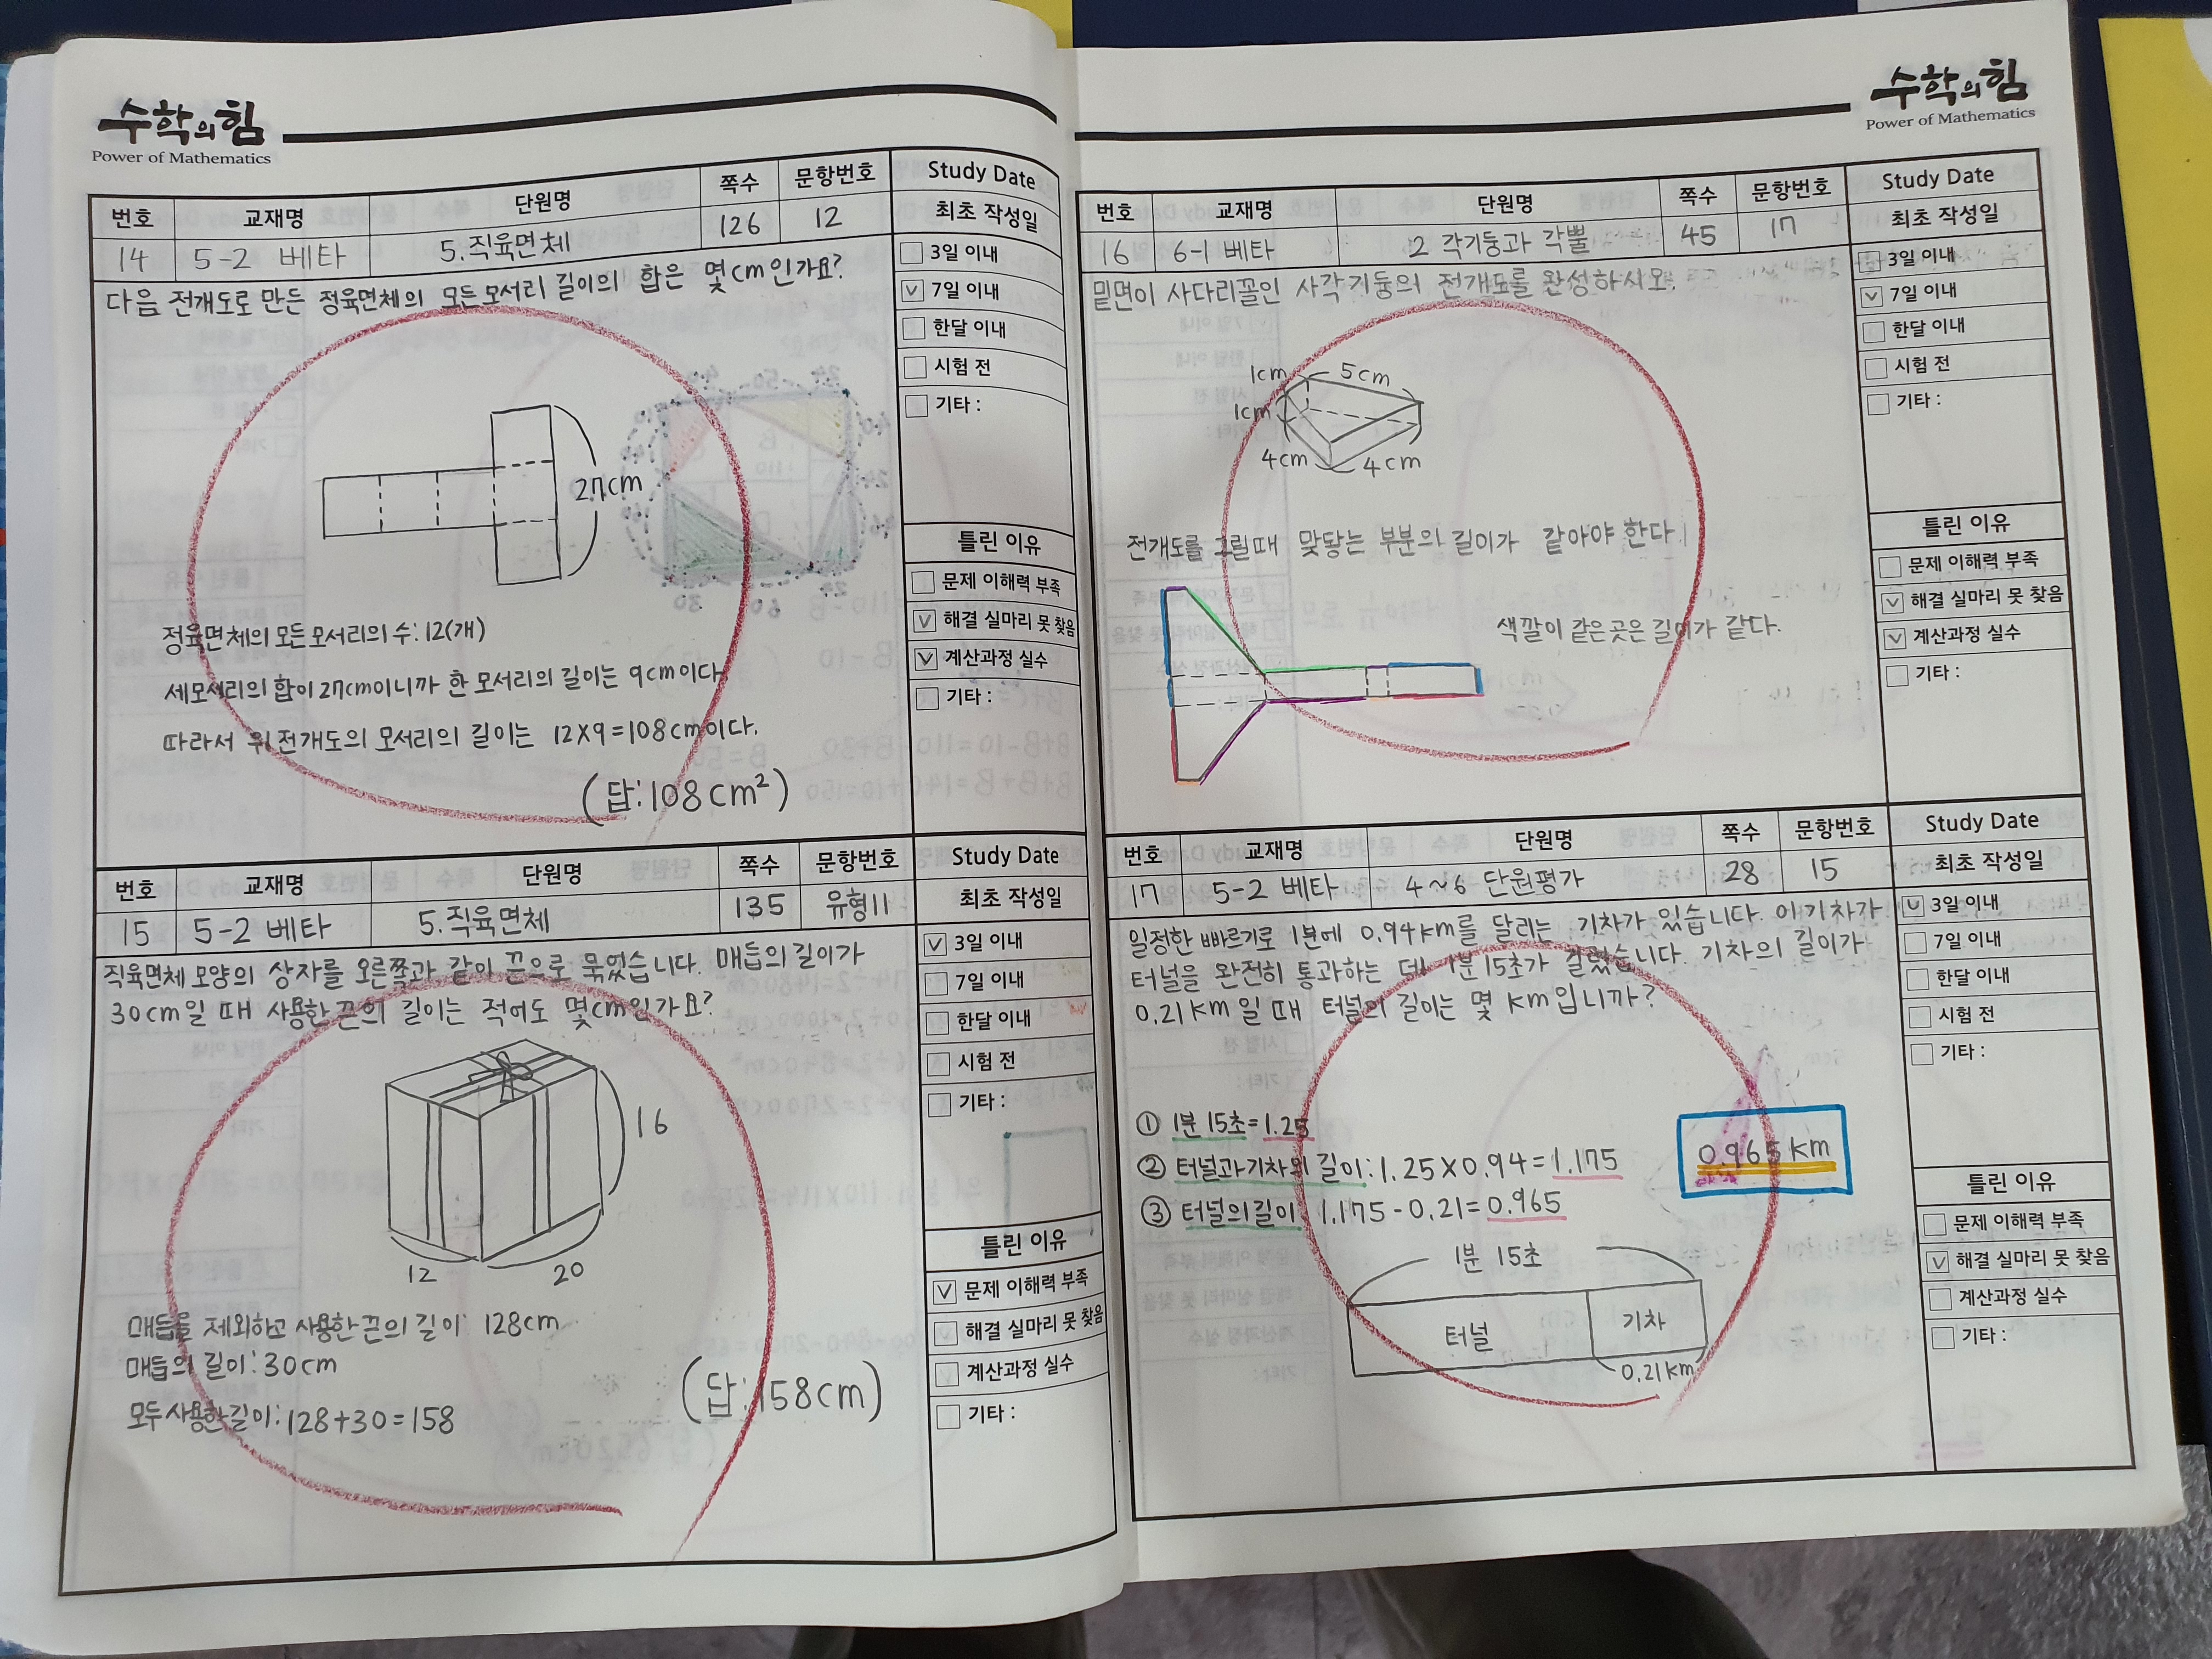 수학의힘
Power of Mathematics
번호 교재명 단원명 쪽수 문항번호 Study Date
14 5-2 베타 5.직육면체 126 12 최초 작성일
다음 전개도로 만든 정육면체의 모든모서리 길이의 합은 몇cm인가요?
3일 이내
7일 이내
한달 이내
시험 전
기타 :
27cm
틀린 이유
문제 이해력 부족
해결 실마리 못 찾음
계산과정 실수
기타 :
정육면체의 모든모서리의 수:12(개)
세모서리의 합이 27cm이니까 한 모서리의 길이는 9cm이다
따라서 위 전개도의 모서리의 길이는 12×9=108cm이다.
(답:108cm²)
번호 교재명 단원명 쪽수 문항번호 Study Date
15 5-2 베타 5.직육면체 135 유형11 최초 작성일
직육면체 모양의 상자를 오른쪽과 같이 끈으로 묶었습니다. 매듭의 길이가
30cm일 때 사용한 끈의 길이는 적어도 몇cm인가요?
3일 이내
7일 이내
한달 이내
시험 전
기타 :
16
12 20
틀린 이유
문제 이해력 부족
해결 실마리 못 찾음
계산과정 실수
기타 :
매듭을 제외하고 사용한 끈의 길이: 128cm
매듭의 길이:30cm
모두 사용한 길이:128+30=158
(답:158cm)
수학의힘
Power of Mathematics
번호 교재명 단원명 쪽수 문항번호 Study Date
16 6-1 베타 2 각기둥과 각뿔 45 17 최초 작성일
밑면이 사다리꼴인 사각기둥의 전개도를 완성하시오.
3일 이내
7일 이내
한달 이내
시험 전
기타 :
1cm 5cm
1cm
4cm 4cm
전개도를 그릴때 맞닿는 부분의 길이가 같아야 한다
색깔이 같은곳은 길이가 같다.
틀린 이유
문제 이해력 부족
해결 실마리 못 찾음
계산과정 실수
기타 :
번호 교재명 단원명 쪽수 문항번호 Study Date
17 5-2 베타 4~6 단원평가 28 15 최초 작성일
일정한 빠르기로 1분에 0.94km를 달리는 기차가 있습니다. 이기차가
터널을 완전히 통과하는 데 1분 15초가 걸렸습니다. 기차의 길이가
0.21km일 때 터널의 길이는 몇 km입니까?
3일 이내
7일 이내
한달 이내
시험 전
기타 :
① 1분 15초=1.25
② 터널과기차의 길이:1.25×0.94=1.175
③ 터널의길이: 1.175-0.21=0.965
0.965km
1분 15초
터널 기차
0.21km
틀린 이유
문제 이해력 부족
해결 실마리 못 찾음
계산과정 실수
기타 :